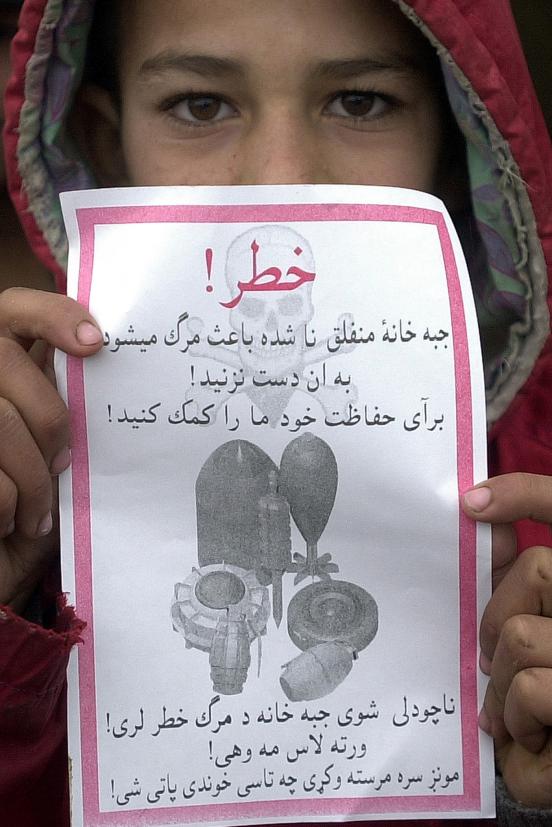 خطر!
جبه خانهٔ منفلق نا شده باعث مرگ میشود
به ان دست نزنید!
برآی حفاظت خود ما را کمك کنید!
ناچودلی شوی جبه خانه د مرگ خطر لری!
ورته لاس مه وهی!
مونږ سره مرسته وکړی چه تاسی خوندی پاتی شی!